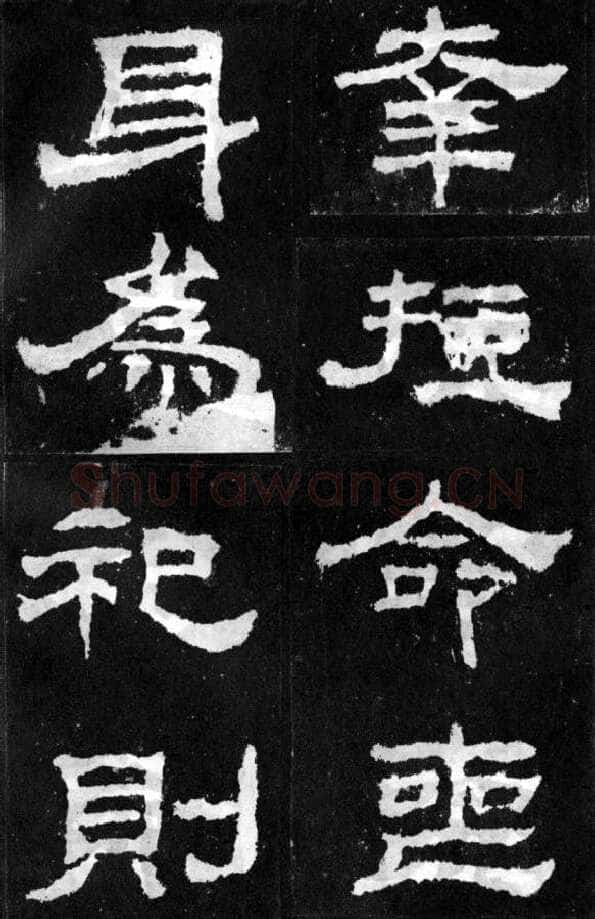 幸短命喪
身為祀則
Shufawang.CN